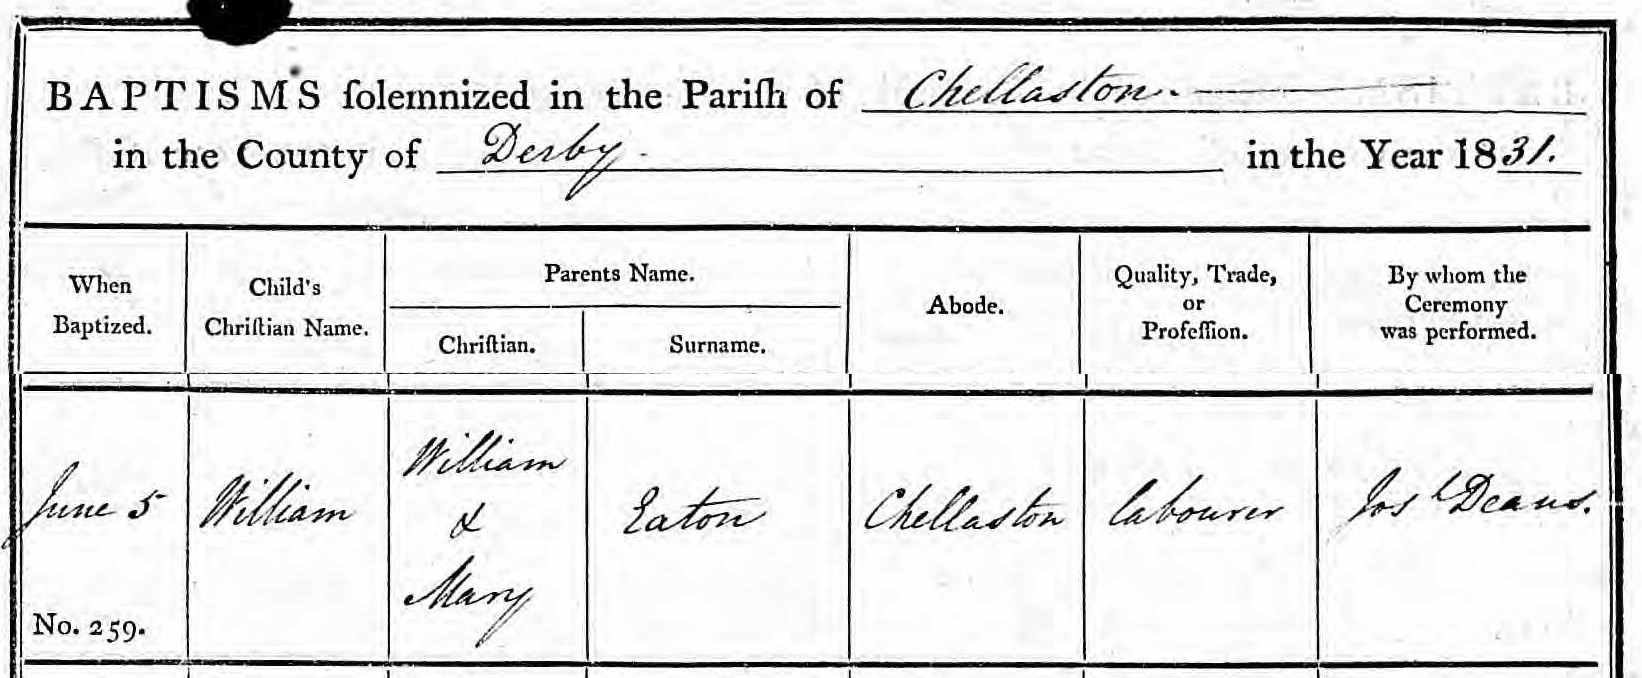 BAPTISMS ſolemnized in the Pariſh of Chellaston.
in the County of Derby. in the Year 1831.
When
Baptized.
Child's
Chriſtian Name.
Parents Name.
Chriſtian.
Surname.
Abode.
Quality, Trade,
or
Profeſſion.
By whom the
Ceremony
was performed.
June 5
No. 259.
William
William
&
Mary
Eaton
Chellaston
labourer
Josh Deans.